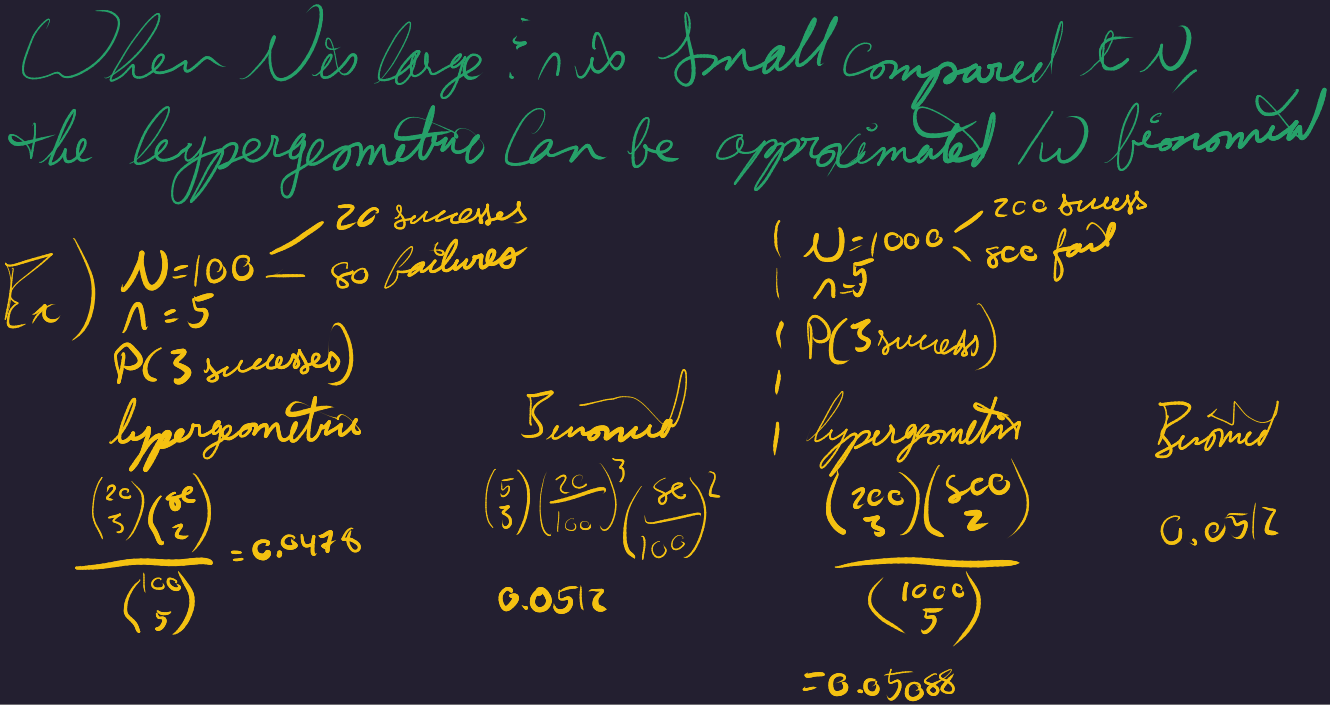 When N is large & n is small compared t N,
the hypergeometric can be approximated /w binomial
Ex) N=100 20 successes
80 failures
n=5
P(3 successes)
hypergeometric Binomial
(20 3)(80 2) / (100 5) = 0.0478
(5 3)(20/100)^3(80/100)^2
0.0512
N=1000 200 success
800 fail
n=5
P(3 success)
hypergeometric Binomial
(200 3)(800 2) / (1000 5)
=0.05088
0.0512